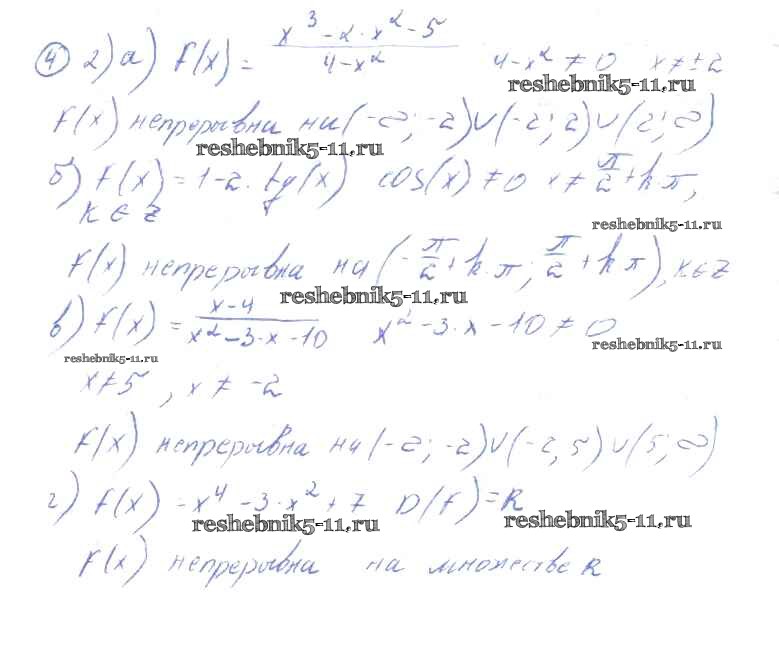 ④ 2) а) f(x) = (x³ - 2·x² - 5)/(4 - x²) 4 - x² ≠ 0 x ≠ ±2
reshebnik5-11.ru
f(x) непрерывна на (-∞; -2)∪(-2; 2)∪(2; ∞)
reshebnik5-11.ru
б) f(x) = 1 - 2·tg(x) cos(x) ≠ 0 x ≠ π/2 + k·π,
k ∈ Z
reshebnik5-11.ru
f(x) непрерывна на (-π/2 + k·π; π/2 + k π), k ∈ Z
reshebnik5-11.ru
в) f(x) = (x - 4)/(x² - 3·x - 10) x² - 3·x - 10 ≠ 0
reshebnik5-11.ru
reshebnik5-11.ru
x ≠ 5, x ≠ -2
f(x) непрерывна на (-∞; -2)∪(-2, 5)∪(5; ∞)
г) f(x) - x⁴ - 3·x² + 7 D(f) = R
reshebnik5-11.ru
reshebnik5-11.ru
f(x) непрерывна на множестве R